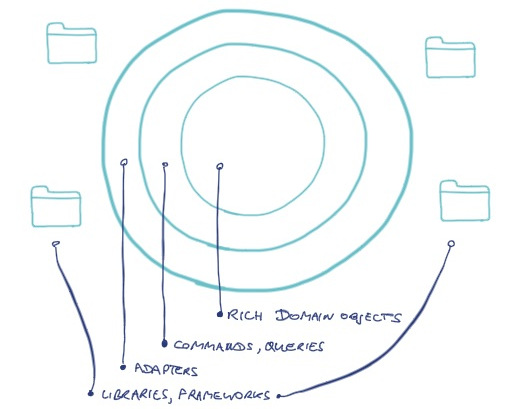 RICH DOMAIN OBJECTS
COMMANDS, QUERIES
ADAPTERS
LIBRARIES, FRAMEWORKS